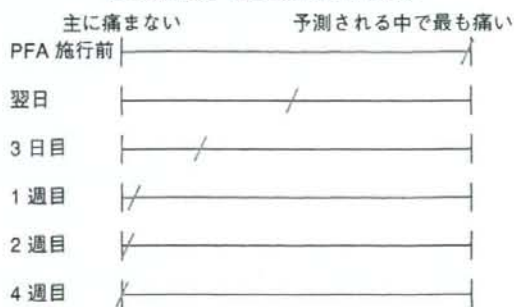 主に痛まない 予測される中で最も痛い
PFA 施行前
翌日
3 日目
1 週目
2 週目
4 週目